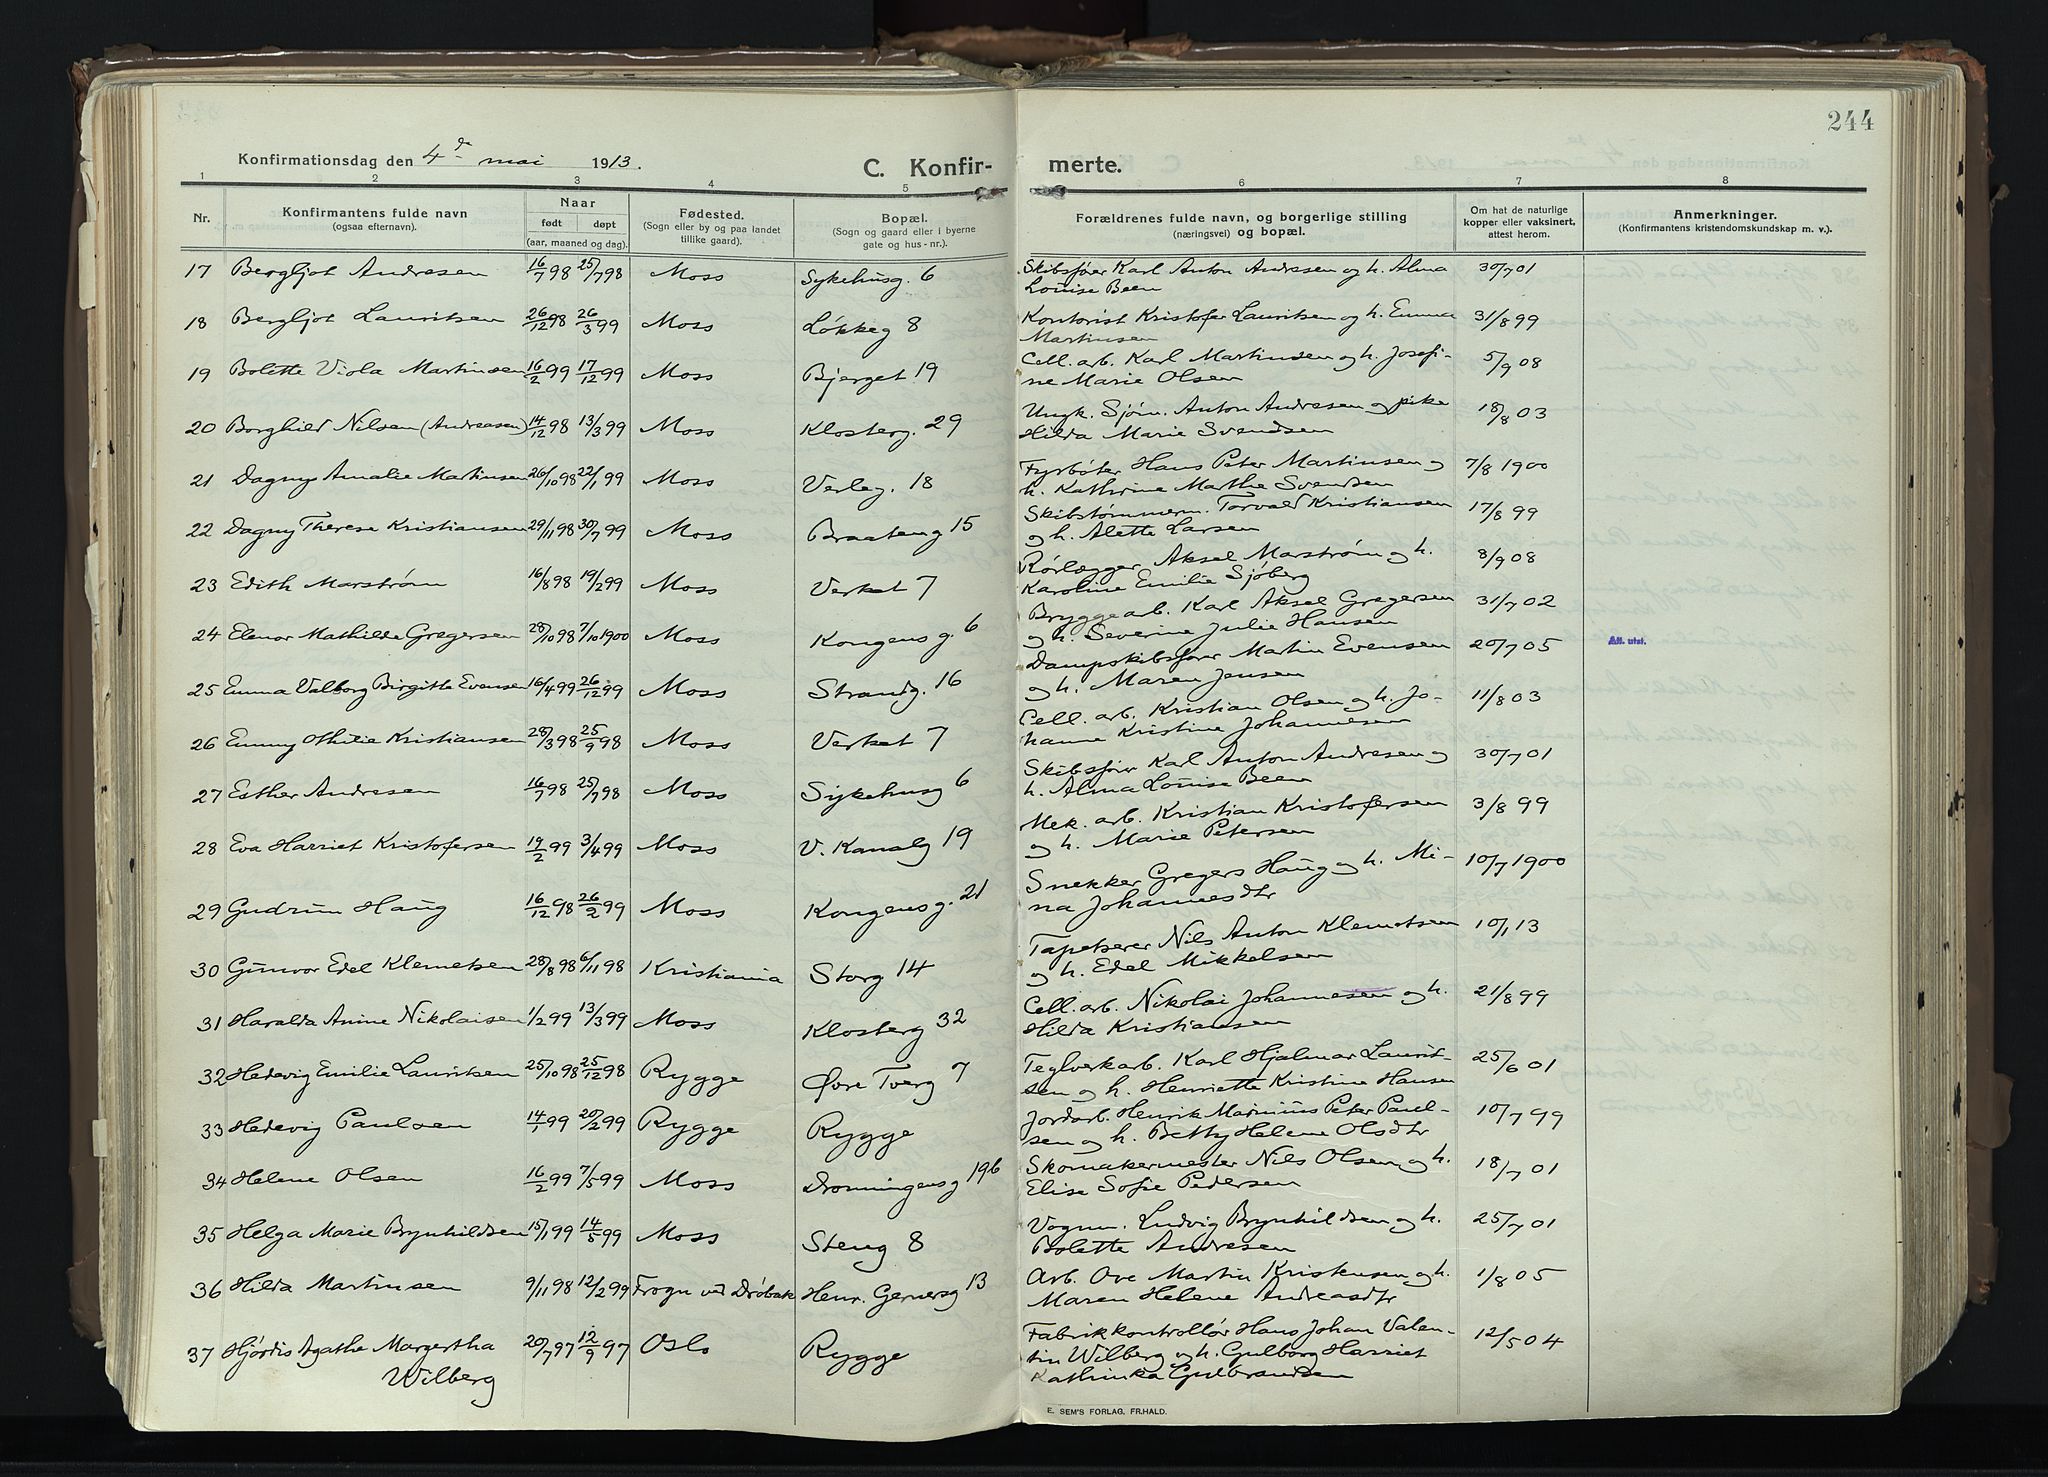 244
Konfirmationsdag den 4de mai 1913.
C. Konfir- merte.
1 2 3 4 5 6 7 8
Nr. Konfirmantens fulde navn (ogsaa efternavn). Naar født døpt (aar, maaned og dag). Fødested. (Sogn eller by og paa landet tillike gaard). Bopæl. (Sogn og gaard eller i byerne gate og hus-nr.). Forældrenes fulde navn, og borgerlige stilling (næringsvei) og bopæl. Om hat de naturlige kopper eller vaksinert, attest herom. Anmerkninger. (Konfirmantens kristendomskundskap m. v.).
17 Bergljot Andresen 16/7 98 25/7 98 Moss Sykehusg. 6 Skibsfører Karl Anton Andresen og h. Alma 30/7 01
Louise Been
18 Bergljot Lauritsen 26/12 98 26/3 99 Moss Løkkeg 8 Kontorist Kristofer Lauritsen og h. Emma 31/8 99
Martinsen
19 Bolette Viola Martinsen 16/2 99 17/12 99 Moss Bjerget 19 Cell. arb. Karl Martinsen og h. Josefi- 5/9 08
ne Marie Olsen
20 Borghild Nilsen (Andreasen) 14/12 98 13/3 99 Moss Klosterg. 29 Ungk. Sjøm. Anton Andresen og pike 18/8 03
Hilda Marie Svendsen
21 Dagny Amalie Martinsen 26/10 98 22/1 99 Moss Verleg. 18 Fyrbøter Hans Peter Martinsen og 7/8 1900
h. Kathrine Marthe Svendsen
22 Dagny Therese Kristiansen 29/11 98 30/7 99 Moss Braateng 15 Skibstømmerm. Torvald Kristiansen 17/8 99
og h. Alette Larsen
23 Edith Marstrøm 16/8 98 19/2 99 Moss Verket 7 Rørlægger Aksel Marstrøm og h. 8/9 08
Karoline Emilie Sjøberg
24 Elenor Mathilde Gregersen 28/10 98 7/10 1900 Moss Kongensg. 6 Bryggearb. Karl Aksel Gregersen 31/7 02
og h. Severine Julie Hansen
25 Emma Valborg Birgitte Evensen 16/4 99 26/12 99 Moss Strandg. 16 Dampskibsfører Martin Evensen 20/7 05 Att. utst.
og h. Maren Jensen
26 Emmy Othilie Kristiansen 28/3 98 25/9 98 Moss Verket 7 Cell. arb. Kristian Olsen og h. Jo- 11/8 03
hanne Kristine Johannesen
27 Esther Andresen 16/7 98 25/7 98 Moss Sykehusg 6 Skibsfører Karl Anton Andresen og 30/7 01
h. Alma Louise Been
28 Eva Harriet Kristofersen 19/2 99 3/4 99 Moss V. Kanalg 19 Mek. arb. Kristian Kristofersen 3/8 99
og h. Marie Petersen
29 Gudrun Haug 16/12 98 26/2 99 Moss Kongensg. 21 Snekker Gregers Haug og h. Mi- 10/7 1900
na Johannesdtr
30 Gunvor Edel Klemetsen 28/8 98 6/11 98 Kristiania Storg 14 Tapetserer Nils Anton Klemetsen 10/1 13
og h. Edel Mikkelsen
31 Haralda Anine Nikolaisen 1/2 99 13/3 99 Moss Klosterg 32 Cell. arb. Nikolai Johannesen og h. 21/8 99
Hilda Kristiansen
32 Hedevig Emilie Lauritsen 25/10 98 25/12 98 Rygge Øvre Tverg 7 Teglverkarb. Karl Hjalmar Laurit- 25/6 01
sen og h. Henriette Kristine Hansen
33 Hedevig Paulsen 14/1 99 20/2 99 Rygge Rygge Jordarb. Henrik Marinius Peter Paul- 10/7 99
sen og h. Betty Helene Olsdtr
34 Helene Olsen 16/2 99 7/5 99 Moss Dronningensg 19b Skomakermester Nils Olsen og h. 18/7 01
Elise Sofie Pedersen
35 Helga Marie Brynhildsen 15/1 99 14/5 99 Moss Steng 8 Vognm. Ludvig Brynhildsen og h. 25/7 01
Bolette Andresen
36 Hilda Martinsen 9/11 98 12/2 99 Frogn ved Drøbak Henr. Gernersg 13 Arb. Ove Martin Kristensen og h. 1/8 05
Maren Helene Andreasdtr
37 Hjørdis Agathe Margertha 20/7 97 12/9 97 Oslo Rygge Fabrikkontrollør Hans Johan Valen- 12/5 04
Wilberg tin Wilberg og h. Gulborg Harriet
Kathinka Gulbrandsen
E. SEM'S FORLAG, FR.HALD.